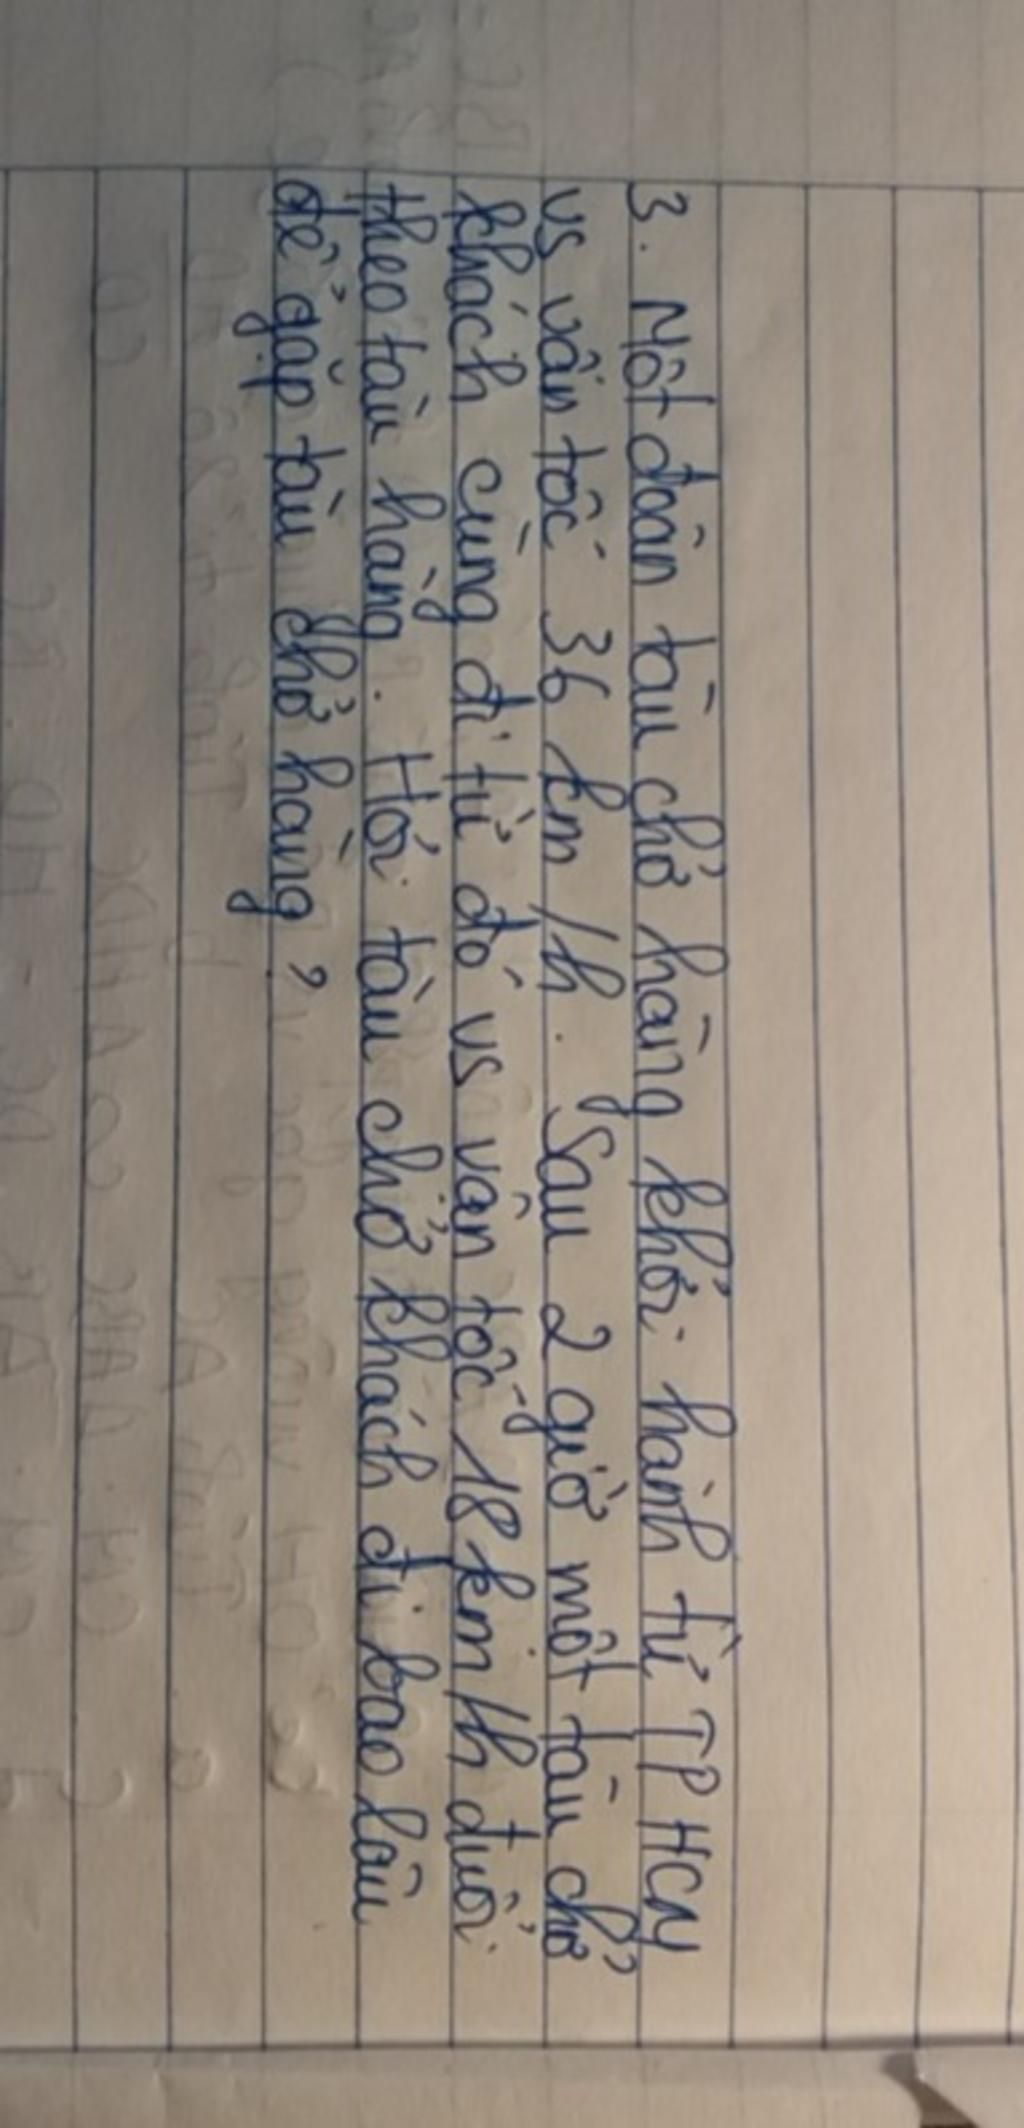 3. Một đoàn tàu chở hàng khởi hành từ TP HCM
vs vân tốc 36 km/h. Sau 2 giờ một tàu chở
khách cùng đi từ đó vs vân tốc 18km/h đuổi
theo tàu hàng. Hỏi tàu chở khách đi bao lâu
để gặp tàu chở hàng?